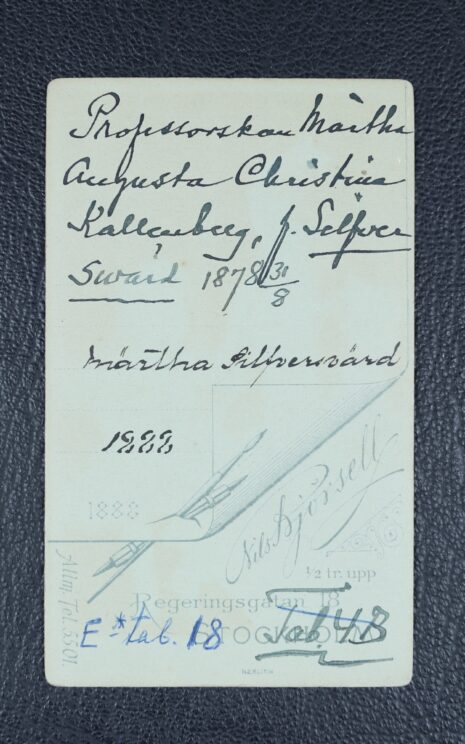 Professorskan Märtha
Augusta Christina
Kallenberg, f. Silfver
Swärd 1878 31/8
Märtha Silfversvärd
1888
1888
Nils Björsell
½ tr. upp
Allm. Tel. 5501.
Regeringsgatan 18
STOCKHOLM
E* tab. 18
Tab. 43
BERLIN